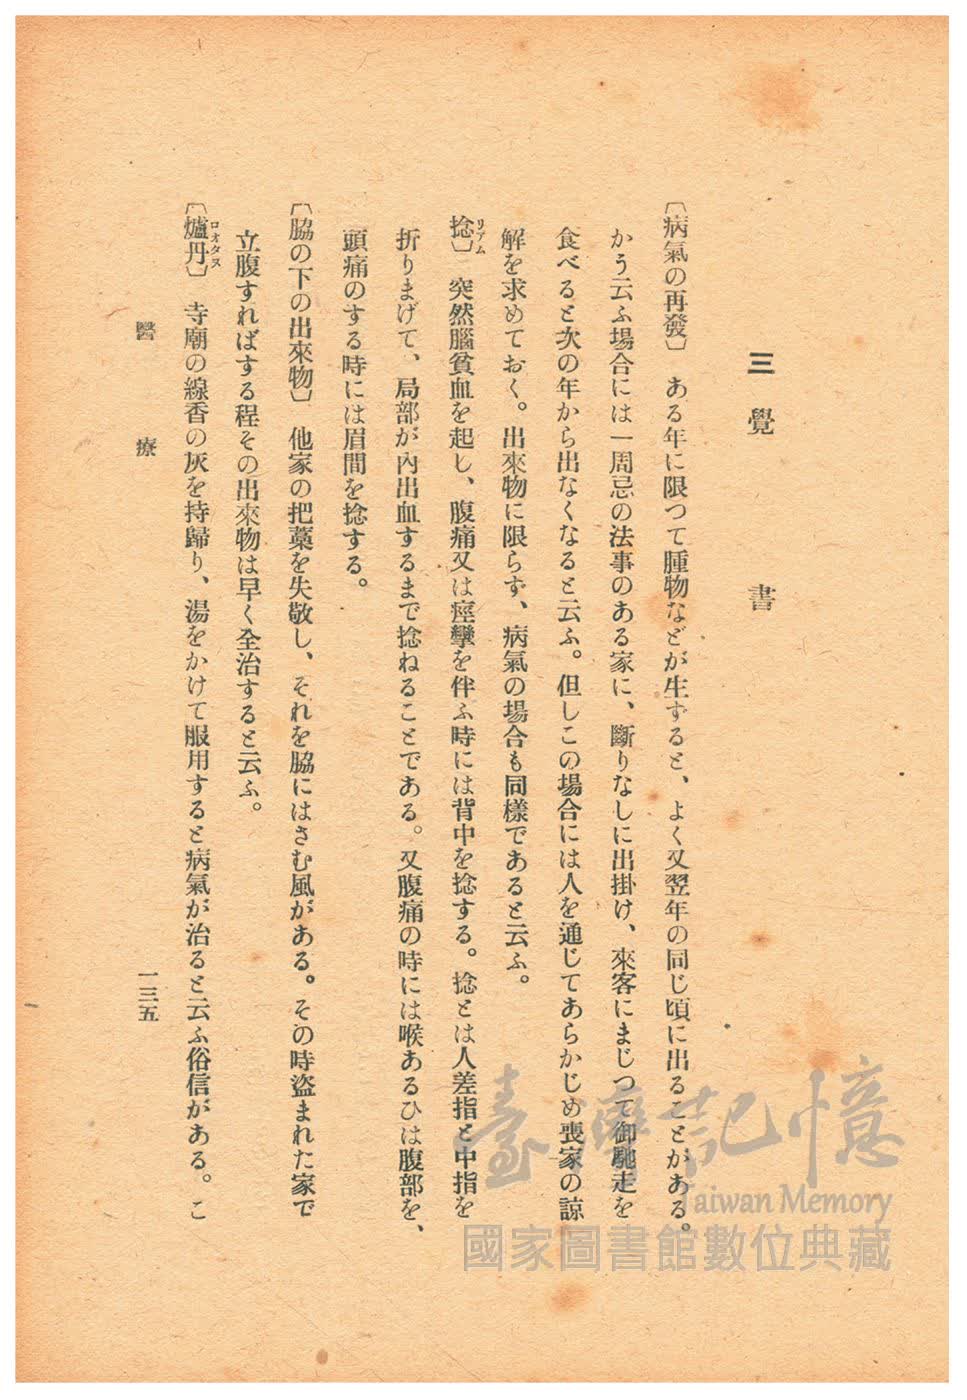 三 覺書
〔病氣の再發〕 ある年に限つて腫物などが生ずると、よく又翌年の同じ頃に出ることがある。
かう云ふ場合には一周忌の法事のある家に、斷りなしに出掛け、來客にまじつて御馳走を
食べると次の年から出なくなると云ふ。但しこの場合には人を通じてあらかじめ喪家の諒
解を求めておく。出來物に限らず、病氣の場合も同樣であると云ふ。
〔捻〕 突然腦貧血を起し、腹痛又は痙攣を伴ふ時には背中を捻する。捻とは人差指と中指を
リアム
折りまげて、局部が內出血するまで捻ねることである。又腹痛の時には喉あるひは腹部を、
頭痛のする時には眉間を捻する。
〔脇の下の出來物〕 他家の把藁を失敬し、それを脇にはさむ風がある。その時盜まれた家で
立腹すればする程その出來物は早く全治すると云ふ。
〔爐丹〕 寺廟の線香の灰を持歸り、湯をかけて服用すると病氣が治ると云ふ俗信がある。こ
ロオタヌ
醫療
一三五
臺灣記憶
Taiwan Memory
國家圖書館數位典藏